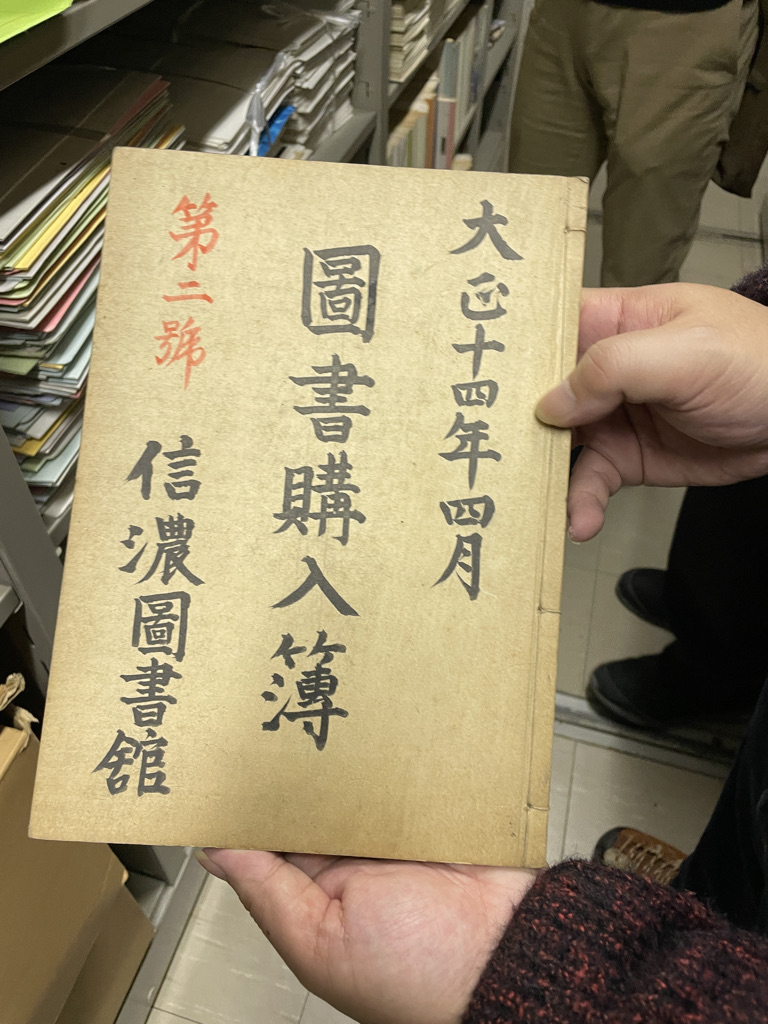 大正十四年四月
圖書購入簿
第二號
信濃圖書舘